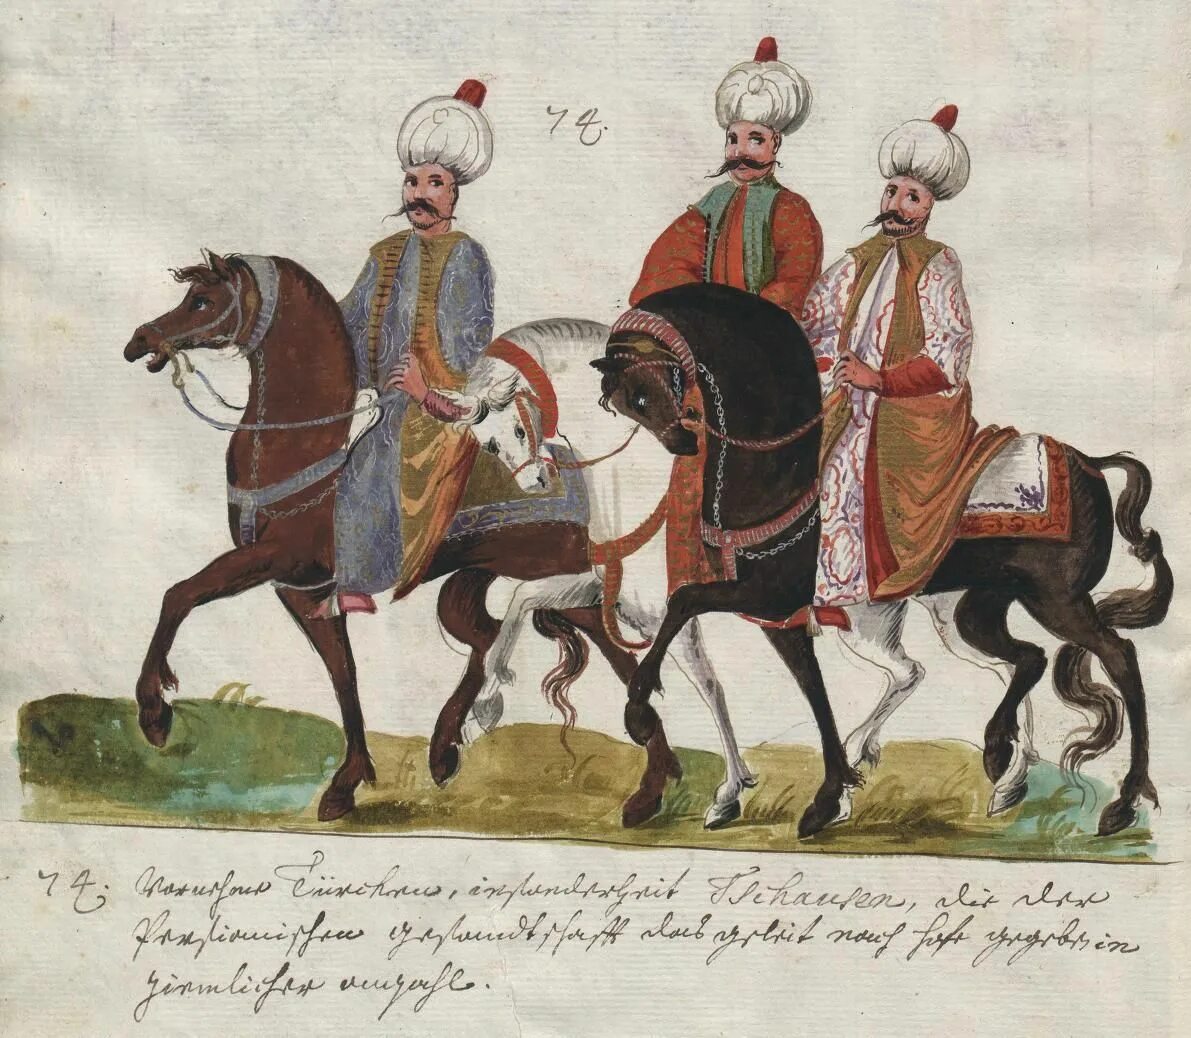 74.
74. Vornehme Türcken, insonderheit Tschausen, die der
Persianischen gesandtschafft das geleit nach hofe gegeben in
ziemlicher anzahl.